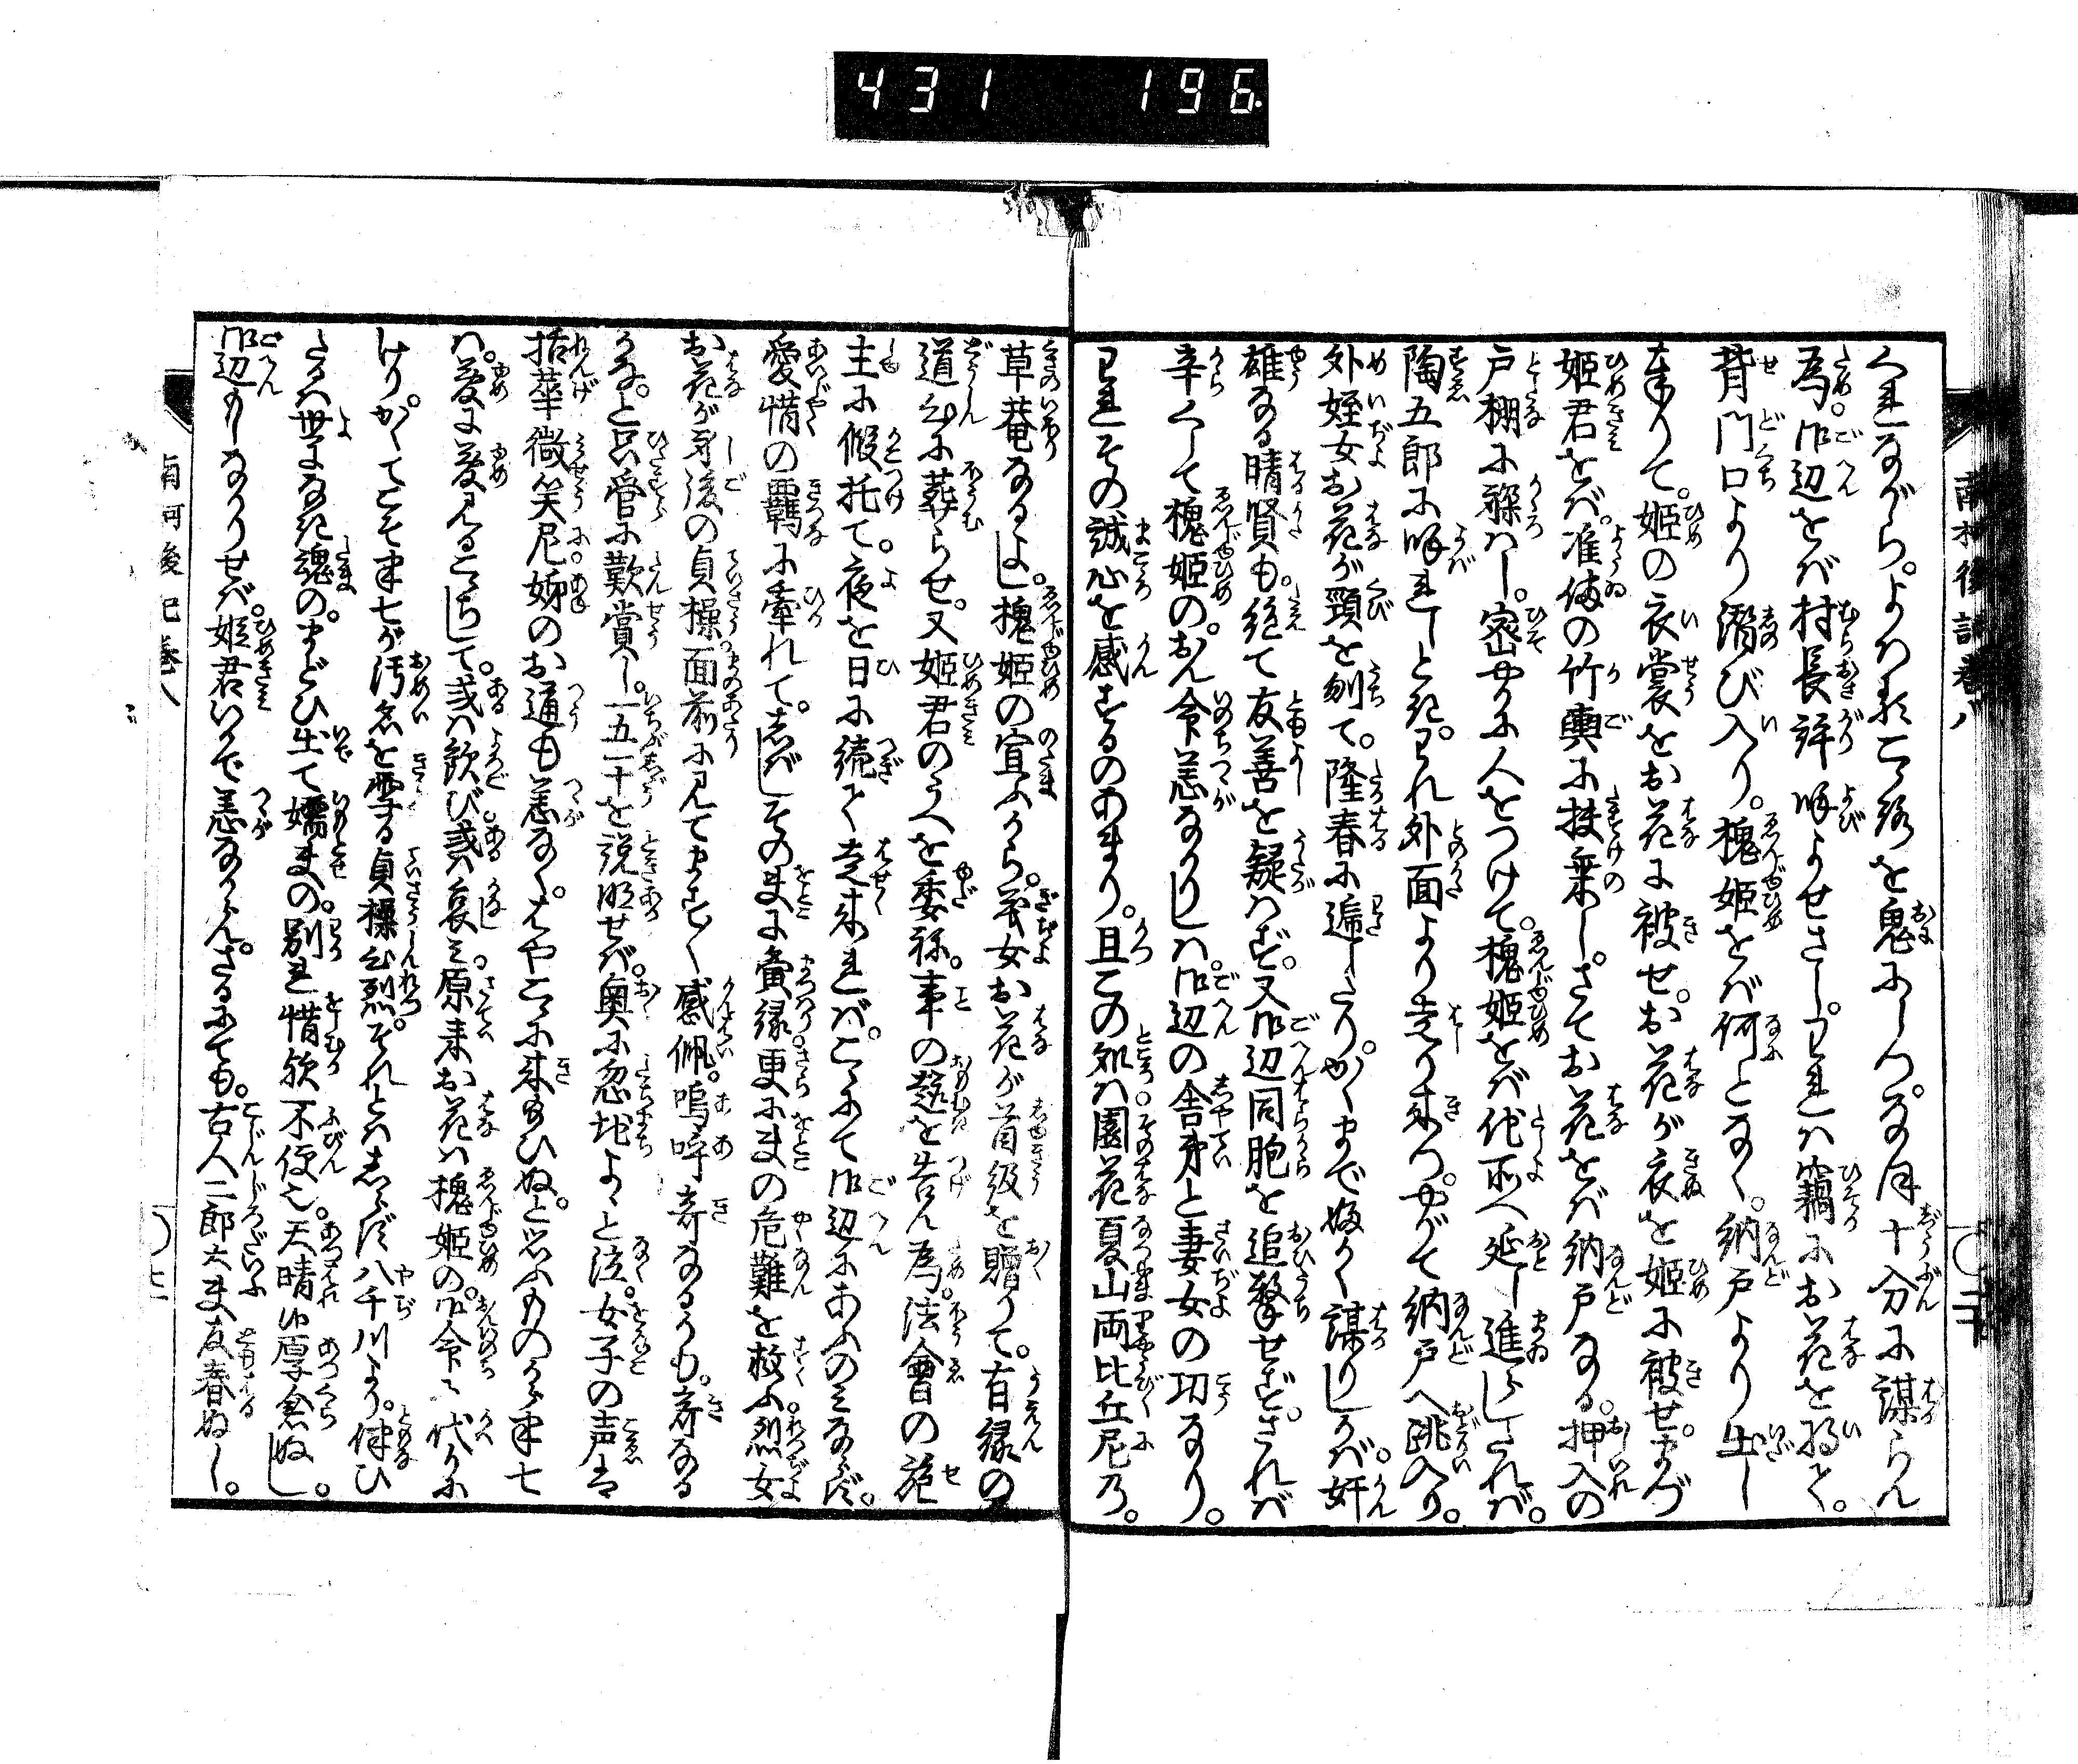 431 196
くれながら。よわきこゝろを鬼にしつ。なほ十分に謀らん
為。御辺をば村長許呼よせさし。われは竊にお花を将て。
背門口より潜び入り。槐姫をば何となく。納戸より出し
まゐりて。姫の衣裳をお花に被せ。お花が衣を姫に被せ。まづ
姫君をば。准備の竹輿に扶乗し。さてお花をば納戸なる。押入の
戸棚に躱はし。密やかに人をつけて。槐姫をば他所へ延し進らしたれば。
陶五郎に呼れしとき。われ外面より走り来つ。やがて納戸へ跳入り。
外姪女お花が頸を刎て。隆春に遞したり。かくまで如く謀りしかば。奸
雄なる晴賢も。絶て友善を疑はず。又御辺同胞を追撃せず。されば
辛くして槐姫の。おん命恙なかりしは。御辺の舎弟と妻女の功なり。
われその誠心を感ずるのあまり。且この処は園花夏山両比丘尼乃。
草菴なるよし。槐姫の宣ふから。義女お花が首級を贈りて。有縁の
道心に葬らせ。又姫君のうへを委ね。事の趣を告ん為。法會の施
主に假托て。夜を日に続て走来れば。こゝにて御辺にあふのみならず。
愛惜の羈に牽れて。しばしその夫に夤縁。更に夫の危難を救ふ烈女
お花が身後の貞操。面前に見てますます感佩。嗚呼奇なるかも。奇なる
かな。と只管に歎賞し。一五一十を説明せば。奥に忽地よゝと泣。女子の声は
括華微笑尼。姉のお通も恙なく。はやこゝに来給ひぬと思ふものから半七
は。夢に夢見るこゝちして。或は歓び或は哀み。原来お花は槐姫の。御命に代りに
けり。かくてこそ半七が汚名を雪る貞操心烈。それとはしらず八千川より。伴ひ
たるは世になき魂の。まどひ出て嬬夫の。別れ惜歟不便也。天晴御厚念ぬし。
御辺なかりせば。姫君いかで恙なからん。さるにても。古人二郎太夫友春ぬし。
南柯後記巻八